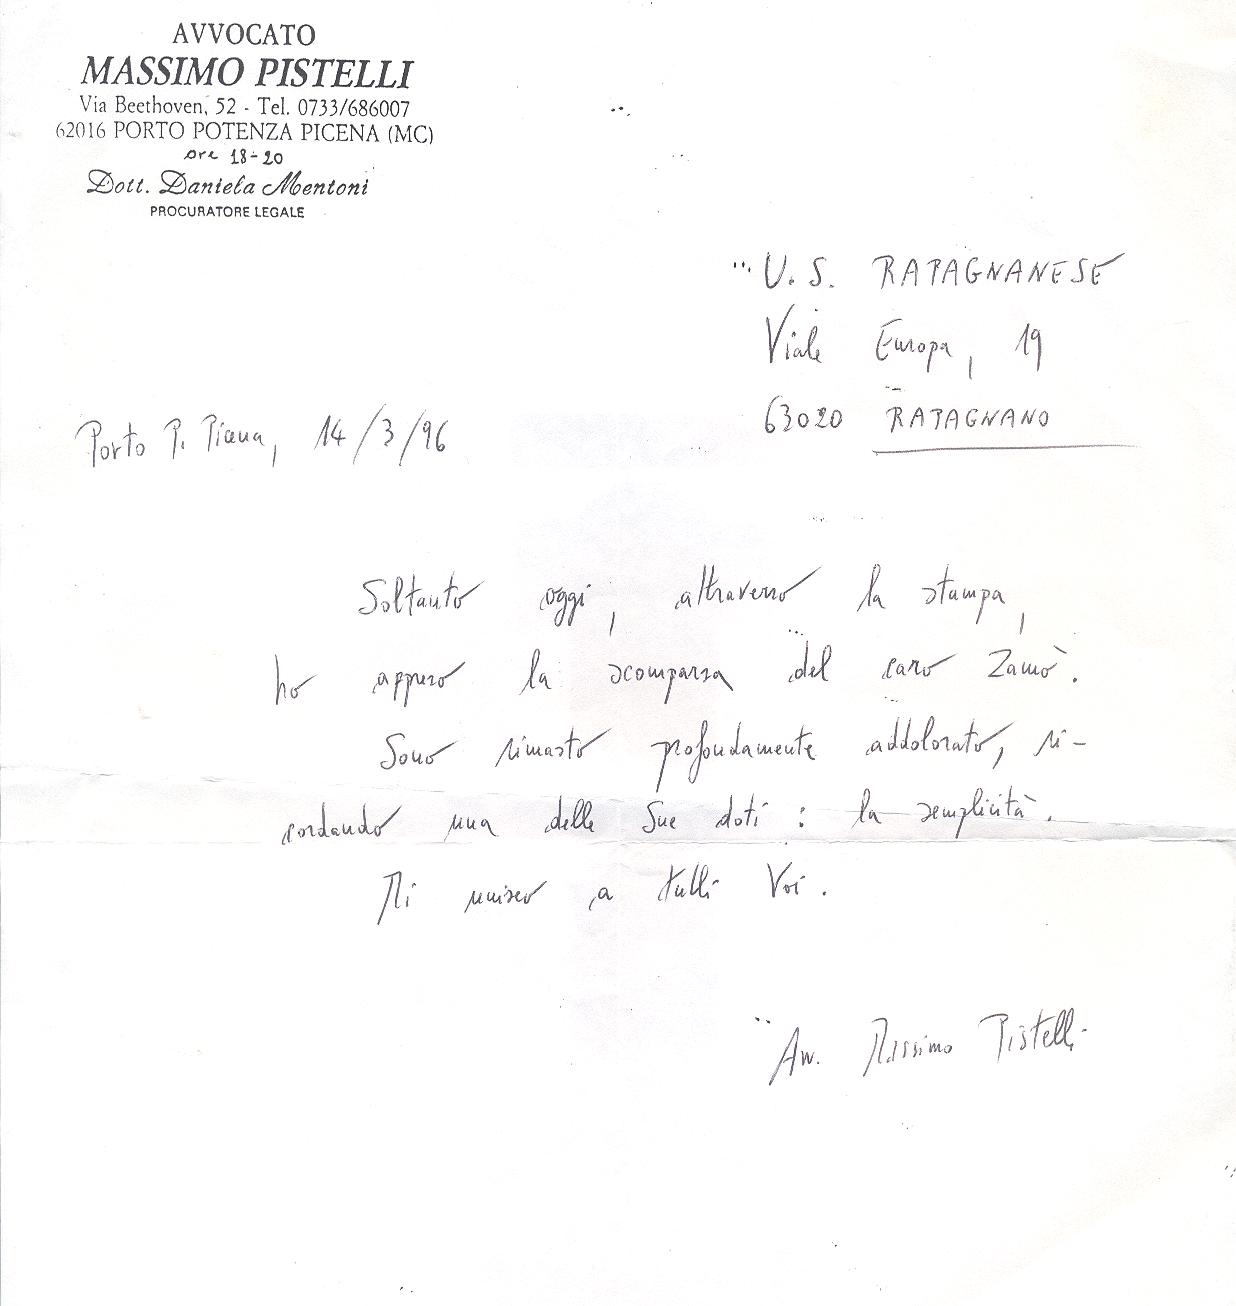 AVVOCATO
MASSIMO PISTELLI
Via Beethoven, 52 - Tel. 0733/686007
62016 PORTO POTENZA PICENA (MC)
ore 18-20
Dott. Daniela Mentoni
PROCURATORE LEGALE
U. S. RAPAGNANESE
Viale Europa, 19
63020 RAPAGNANO
Porto P. Picena, 14/3/96
Soltanto oggi, attraverso la stampa,
ho appreso la scomparsa del caro Zamò.
Sono rimasto profondamente addolorato, ri-
cordando una delle Sue doti: la semplicità.
Mi unisco a tutti Voi.
Avv. Massimo Pistelli